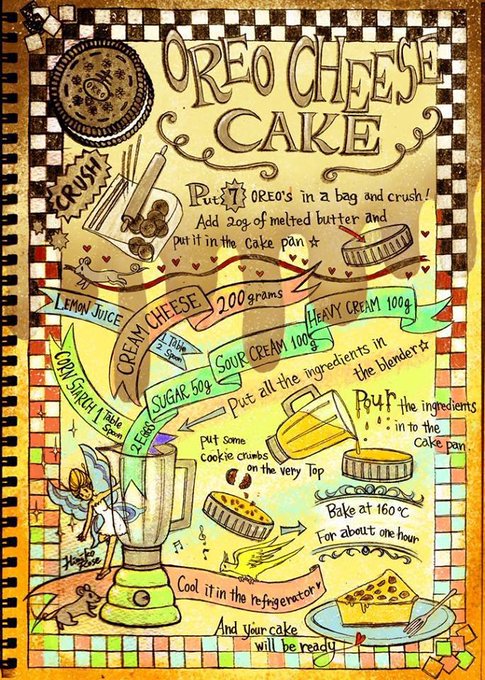 OREO CHEESE
CAKE
OREO
CRUSH
Put 7 OREO's in a bag and crush!
Add 20g of melted butter and
put it in the cake pan ☆
LEMON JUICE
1 Table
2 Spoon
CREAM CHEESE 200 grams
CORN STARCH 1 Table Spoon
2 EGGS SUGAR 50g SOUR CREAM 100g HEAVY CREAM 100g
Put all the ingredients in
the blender ☆
Pour the ingredients
in to the
cake pan
put some
cookie crumbs
on the very Top
Bake at 160°C
For about one hour
Cool it in the refrigerator ♥
And your cake
will be ready